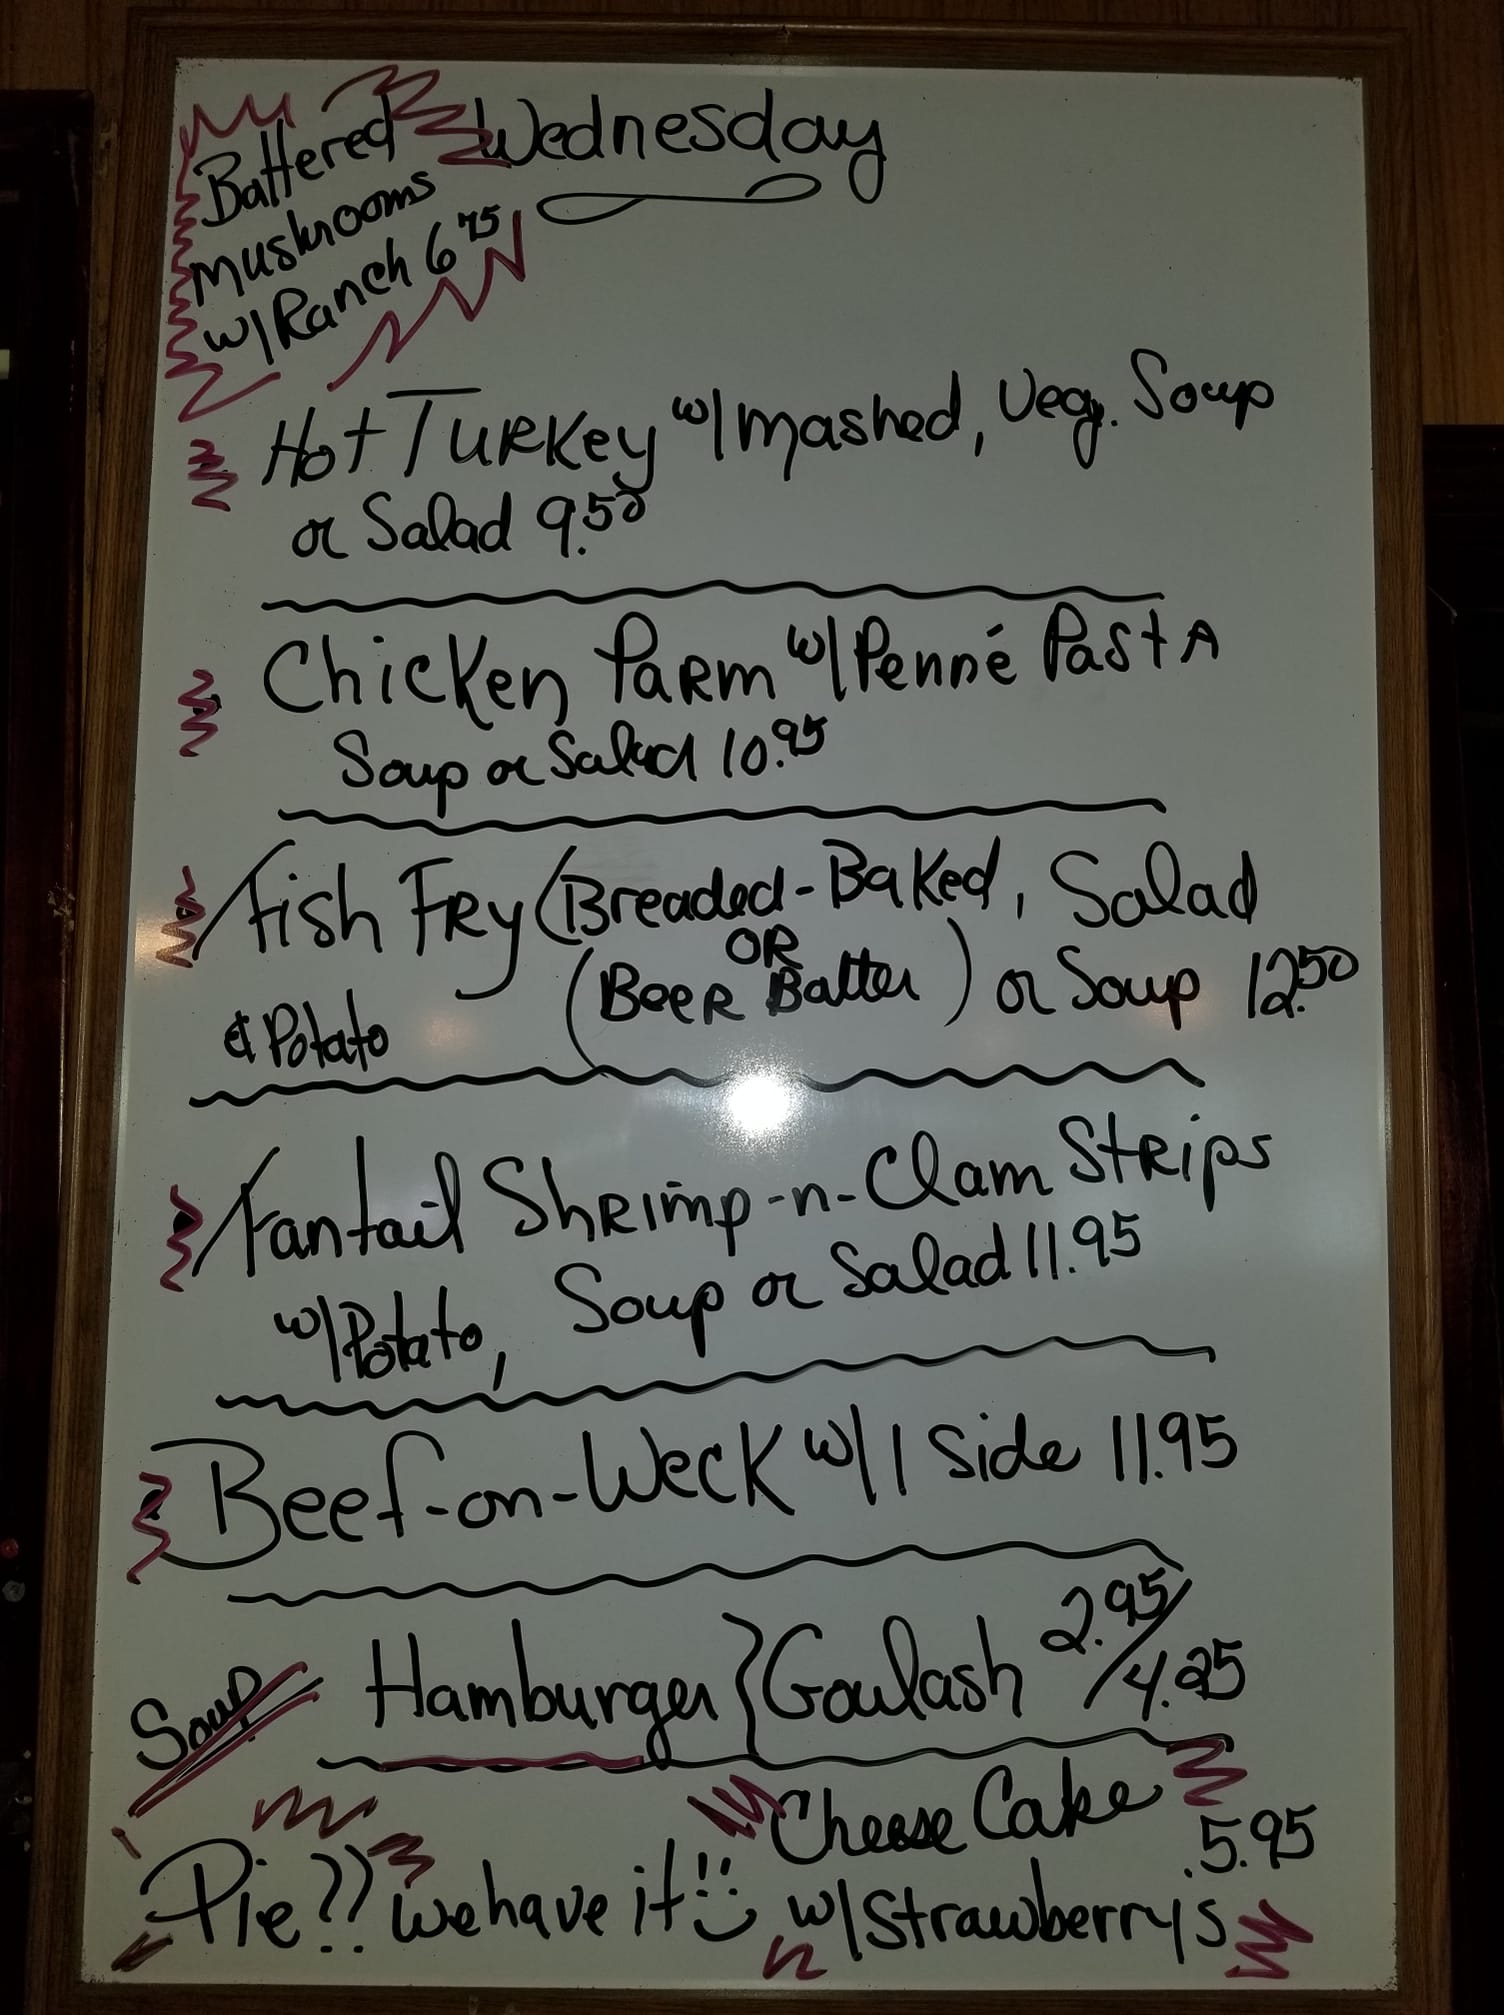 Wednesday
Battered
mushrooms
w/Ranch 6 75
Hot Turkey w/ mashed, Veg. Soup
or Salad 9.50
Chicken Parm w/ Penné Pasta
Soup or Salad 10.95
Fish Fry (Breaded-Baked, Salad
OR
& Potato (Beer Batter) or Soup 12.50
Fantail Shrimp-n-Clam Strips
w/Potato, Soup or Salad 11.95
Beef-on-Weck w/ 1 Side 11.95
Soup Hamburger } Goulash 2.95/4.25
Pie?? we have it!!
Cheese Cake
w/Strawberry's 5.95